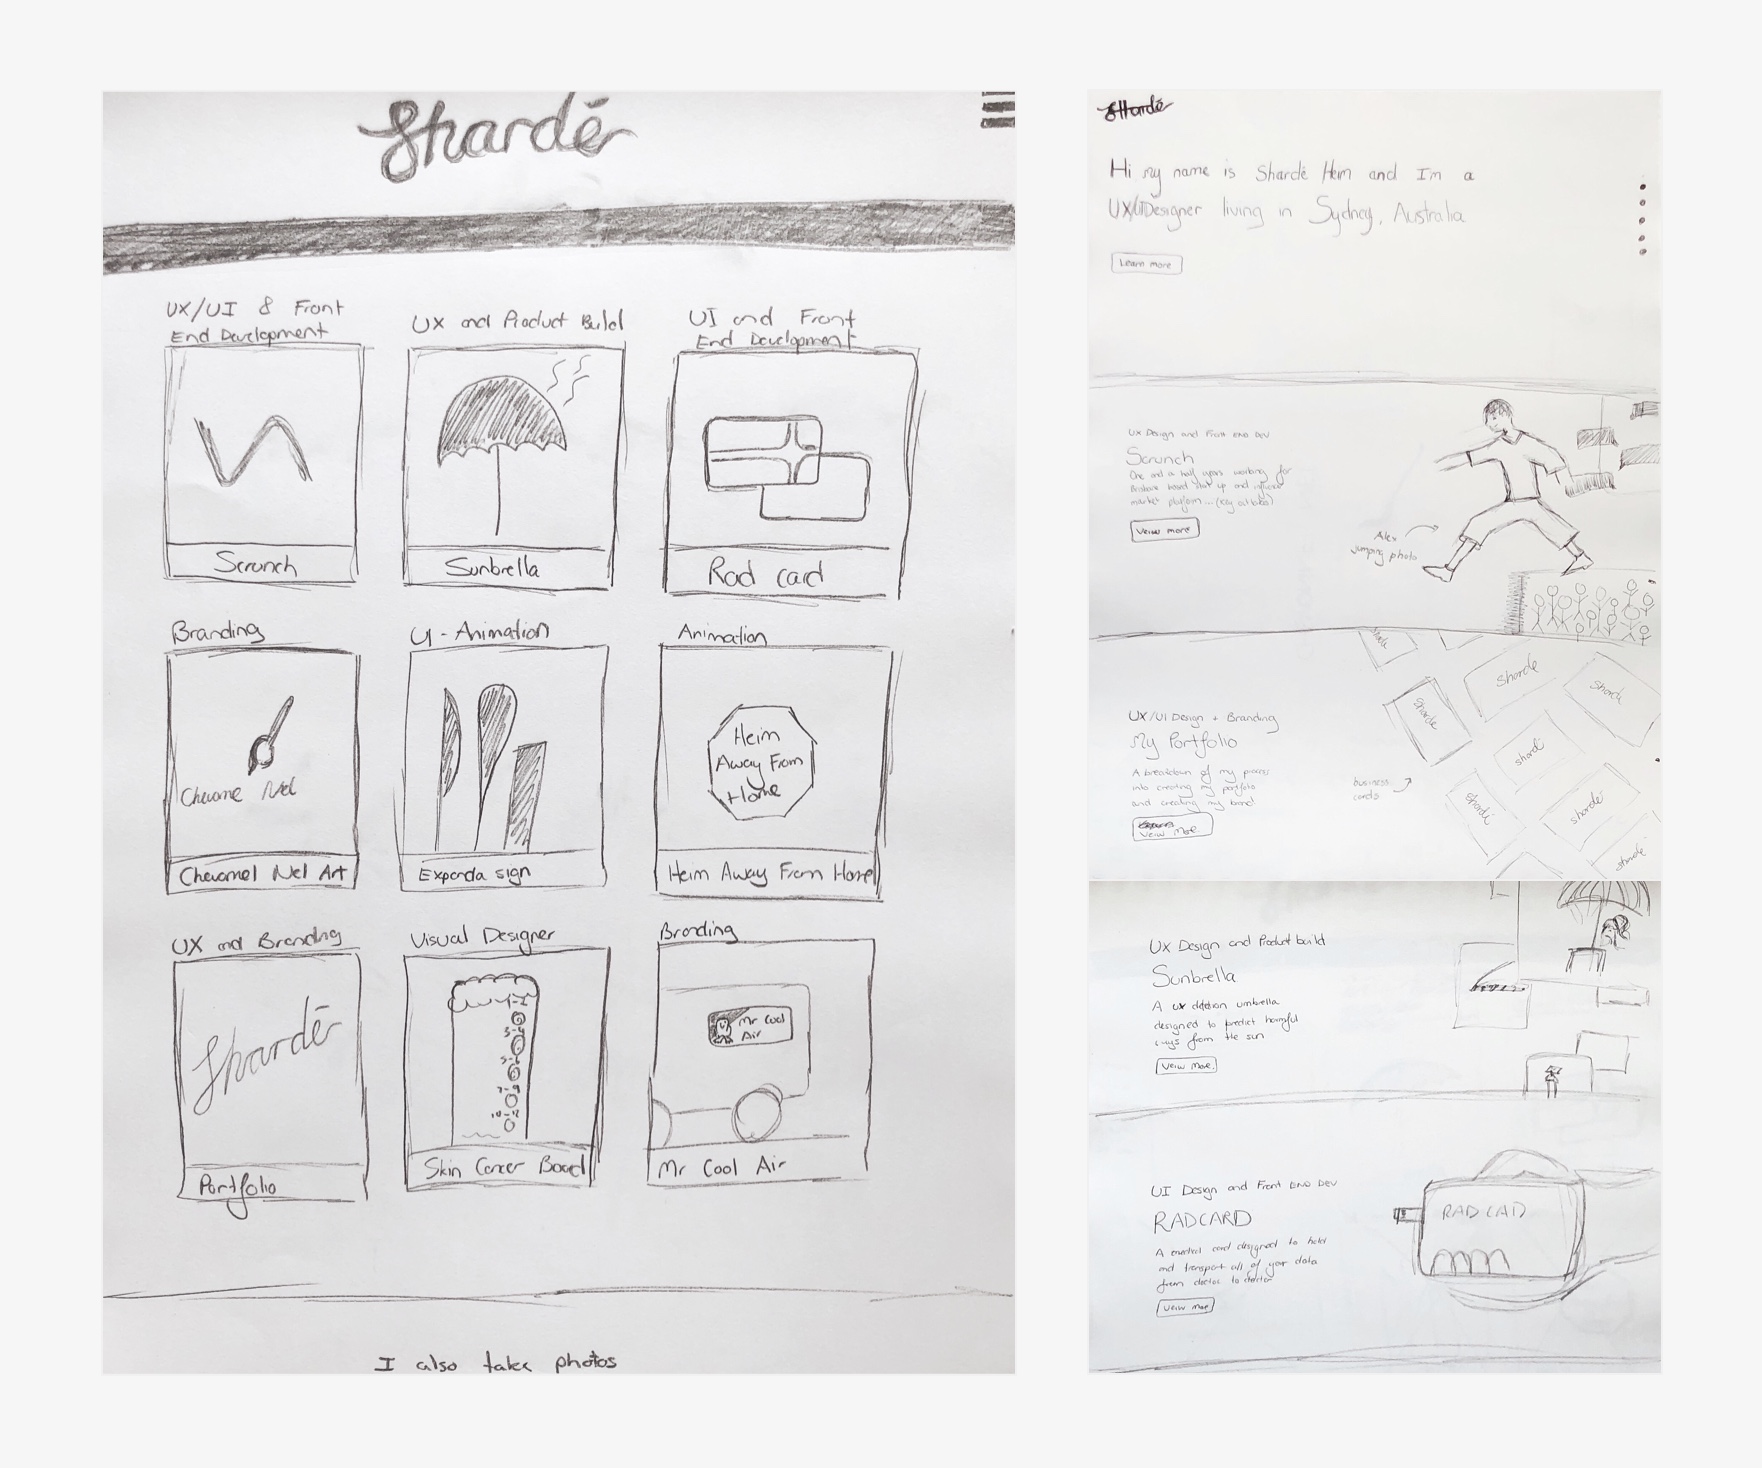 Shardé
UX/UI & Front
End Development
Scrunch
UX and Product Build
Sunbrella
UI and Front
End Development
Rad card
Branding
Nel
Nel Art
UI - Animation
Expanda sign
Animation
Heim
Away From
Home
Heim Away From Home
UX and Branding
Shardé
Portfolio
Visual Designer
Skin Cancer Board
Branding
Mr Cool
Air
Mr Cool Air
I also take photos
Shardé
Hi my name is Shardé Heim and Im a
UX/UI Designer living in Sydney, Australia
Learn more
UX Design and Front END DEV
Scrunch
One and a half years working for
Brisbane based start up and
market platform...
Veiw more
Alex
jumping photo
UX/UI Design + Branding
My Portfolio
A breakdown of my process
into creating my portfolio
and creating my brand
Veiw More
business
cards
shardé
shardé
shardé
shardé
shardé
shardé
shardé
shardé
UX Design and Product build
Sunbrella
A UX umbrella
designed to predict harmful
rays from the sun
Veiw more
UI Design and Front END DEV
RADCARD
A medical card designed to hold
and transport all of your data
from doctor to doctor
Veiw more
RAD CAD